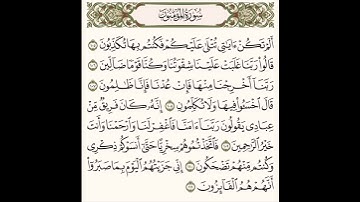 سورة المؤمنون
ألم تكن ءايتى تتلى عليكم فكنتم بها تكذبون ١٠٥
قالوا ربنا غلبت علينا شقوتنا وكنا قوما ضالين ١٠٦
ربنا أخرجنا منها فإن عدنا فإنا ظلمون ١٠٧
قال اخسءوا فيها ولا تكلمون ١٠٨ إنه كان فريق من
عبادى يقولون ربنا ءامنا فاغفر لنا وارحمنا وأنت
خير الرحمين ١٠٩ فاتخذتموهم سخريا حتى أنسوكم ذكرى
وكنتم منهم تضحكون ١١٠ إنى جزيتهم اليوم بما صبروا
أنهم هم الفائزون ١١١